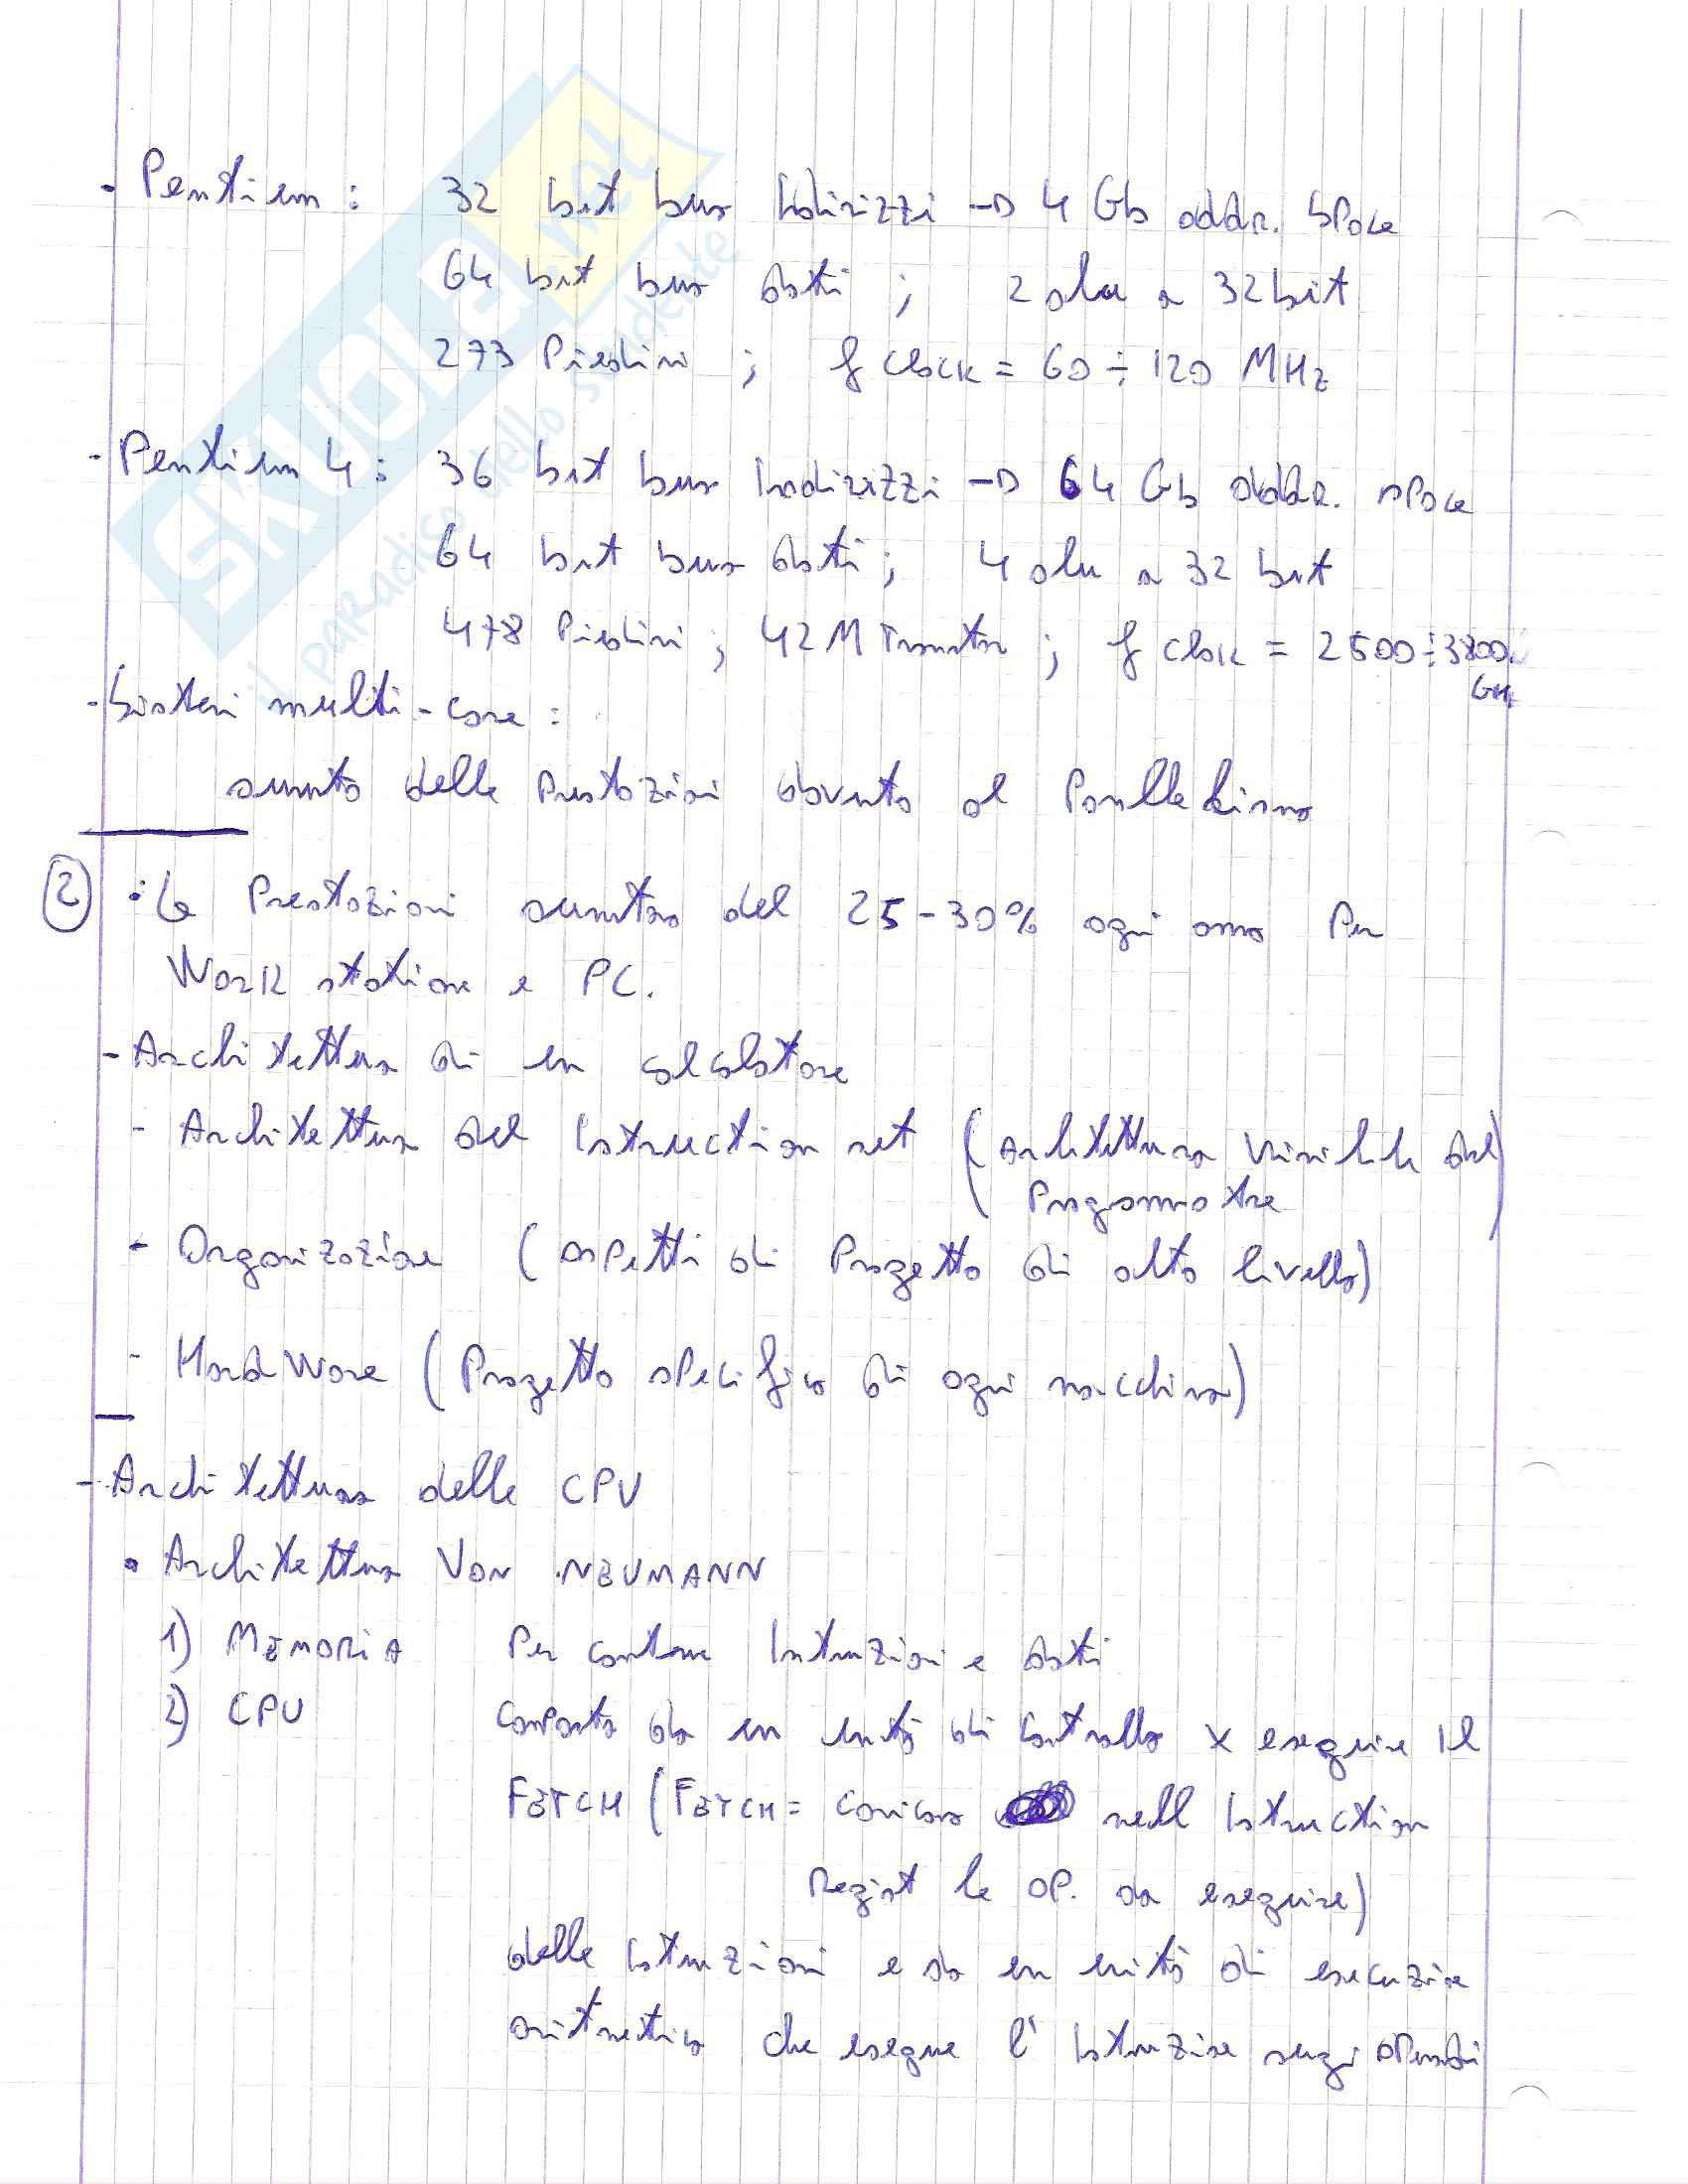 - Pentium : 32 bit bus Indirizzi → 4 Gb addr. space
64 bit bus dati ; 2 alu a 32 bit
273 Piedini ; f clock = 60 ÷ 120 MHz
- Pentium 4 : 36 bit bus Indirizzi → 64 Gb addr. space
64 bit bus dati ; 4 alu a 32 bit
478 Piedini ; 42 M Transistor ; f clock = 2500 ÷ 3800
GHz
- Sistemi multi-core :
aumento delle Prestazioni dovuto al Parallelismo
2 • Le Prestazioni aumentano del 25-30% ogni anno Per
Work station e PC.
- Architettura di un calcolatore
- Architettura del Istruction set (Architettura visibile dal
Programmatore)
- Organizzazione (aspetti di Progetto di alto livello)
- HardWare (Progetto specifico di ogni macchina)
- Architettura delle CPU
• Architettura VON NEUMANN
1) MEMORIA Per contenere Istruzioni e dati
2) CPU composta da un unità di controllo x eseguire Il
FETCH (FETCH = caricare nell Istruction
Regist le OP. da eseguire)
delle istruzioni e da un unità di esecuzione
aritmetica che esegue l' Istruzione sugli operandi
SKUOLA.net
il paradiso dello studente